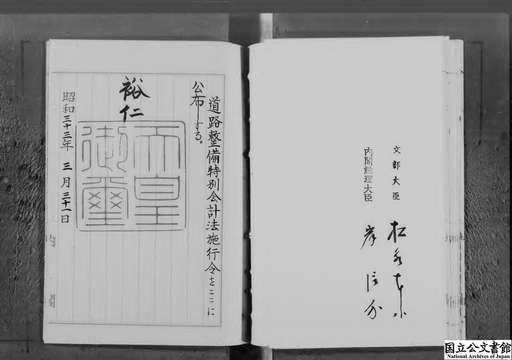 文部大臣 松永東
内閣総理大臣 岸信介
道路整備特別会計法施行令をここに
公布する。
裕仁
天皇御璽
昭和三十三年 三月 三十一日
内閣
国立公文書館
National Archives of Japan